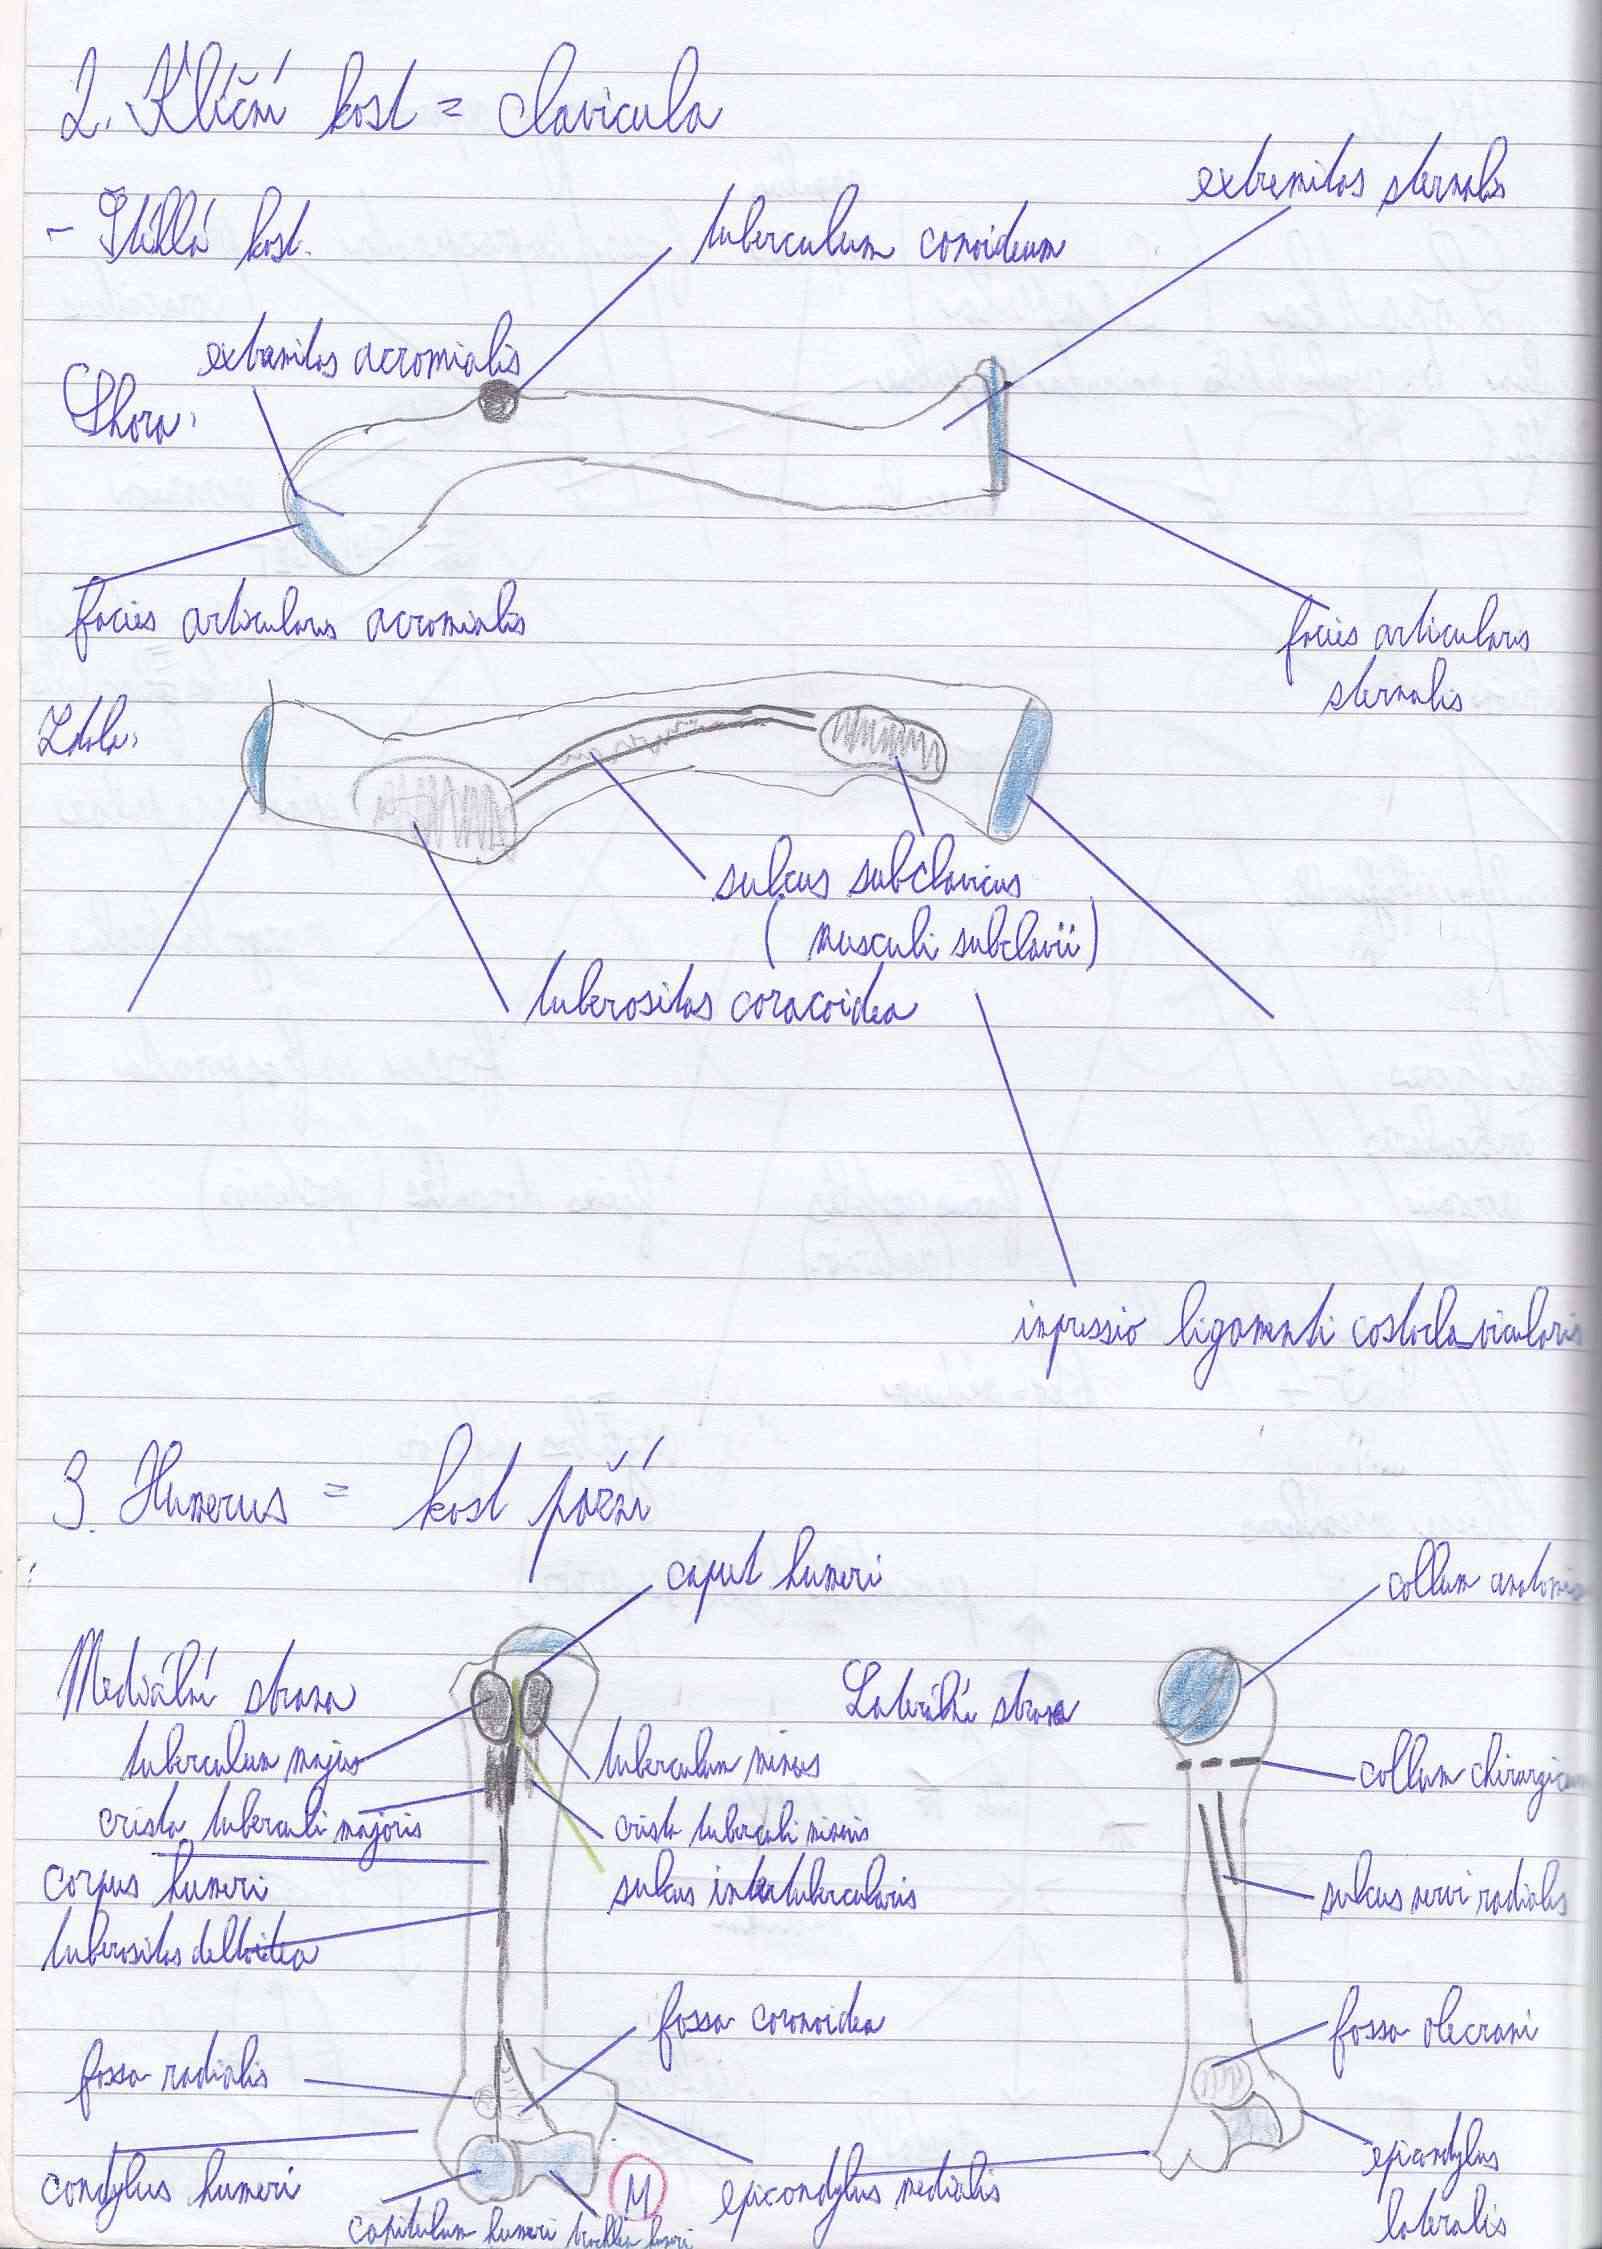 2. Klíční kost = clavicula
- Štíhlá kost.
extremitas sternalis
tuberculum conoideum
extremitas acromialis
Shora:
facies articularis acromialis
facies articularis
sternalis
Zdola:
sulcus subclavius
(musculi subclavii)
tuberositas coracoidea
impressio ligamenti costoclavicularis
3. Humerus = kost pažní
caput humeri
collum
Mediální strana
Laterální strana
tuberculum majus
tuberculum minus
collum
crista tuberculi majoris
crista tuberculi minoris
corpus humeri
sulcus intertubercularis
sulcus nervi radialis
tuberositas deltoidea
fossa coronoidea
fossa olecrani
fossa radialis
condylus humeri
M
epicondylus medialis
epicondylus
lateralis
capitulum humeri trochlea humeri